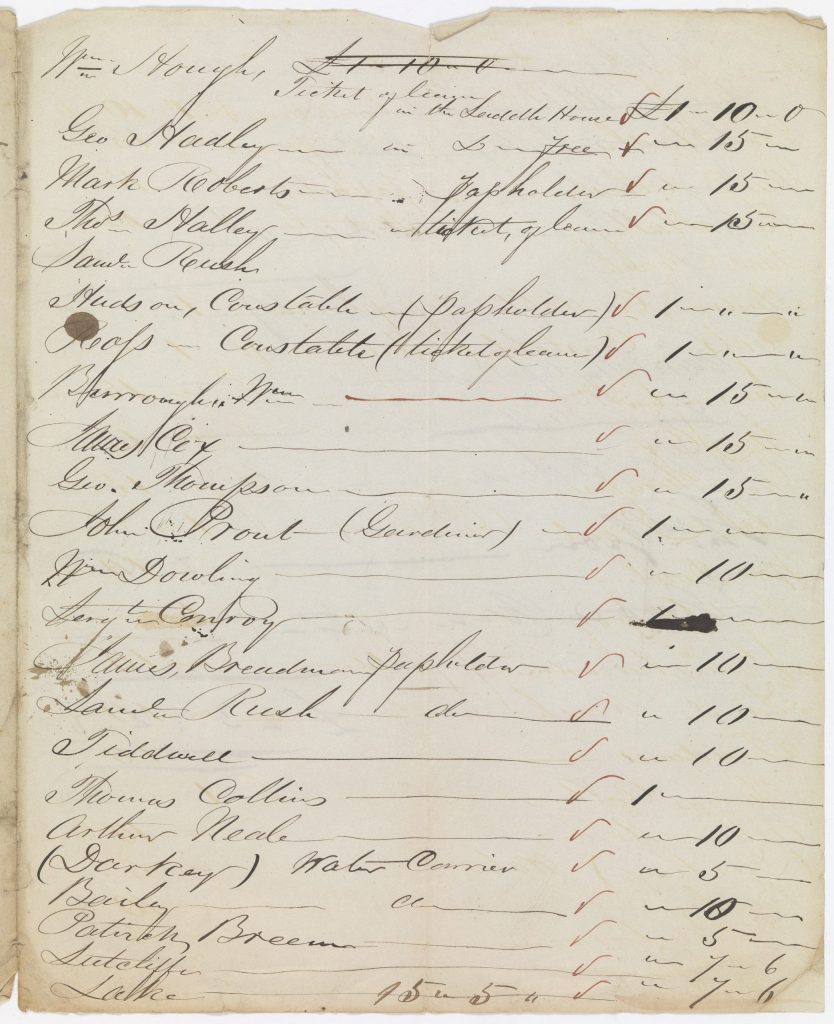 Wm Hough, £1 - 10 - 0
Ticket of leave
in the Saddle House £1 " 10 " 0
Geo Hadley — in Do — Free " 15 "
Mark Roberts — passholder " 15 "
Thos Halley — ticket, of leave " 15 "
Saml Rush
Hudson, Constable — (passholder) 1 " "
Ross — Constable (ticket of leave) 1 " "
Burrough, Wm — " 15 "
James Cox — " 15 "
Geo. Thompson — " 15 "
John Prout (Gardiner) — 1 "
Wm Dowling — " 10 —
Sergt Conroy — 1 —
James, Breadman passholder " 10 —
Saml Rush — do — " 10 —
Tiddwell — " 10 —
Thomas Collins — 1 —
Arthur Neale — " 10 —
(Darkey) Water Carrier " 5 —
Bailey — do — " 10 —
Patrick, Breen — " 5 —
Sutcliffe — " 7 " 6
Lake — 15 " 5 " " 7 " 6